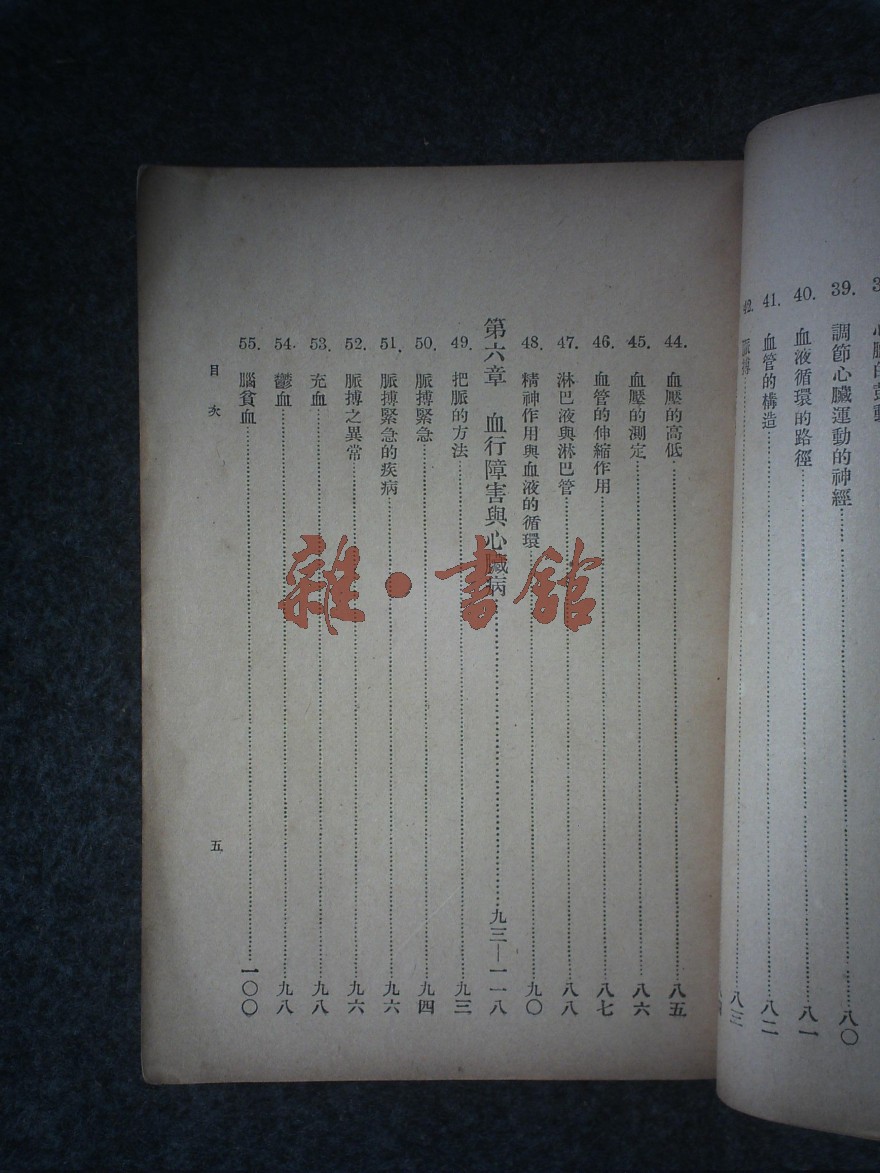 心臟的鼓動
39. 調節心臟運動的神經……八〇
40. 血液循環的路徑……八一
41. 血管的構造……八二
42. 脈搏……八三
44. 血壓的高低……八五
45. 血壓的測定……八六
46. 血管的伸縮作用……八七
47. 淋巴液與淋巴管……八八
48. 精神作用與血液的循環……九〇
第六章 血行障害與心臟病……九三—一一八
49. 把脈的方法……九三
50. 脈搏緊急……九四
51. 脈搏緊急的疾病……九六
52. 脈搏之異常……九六
53. 充血……九八
54. 鬱血……九八
55. 腦貧血……一〇〇
目次
五
雜·書館